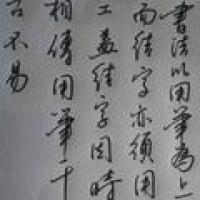 書法以用筆為上
而结字亦須用
工盖结字因時
相傳用筆千
古不易